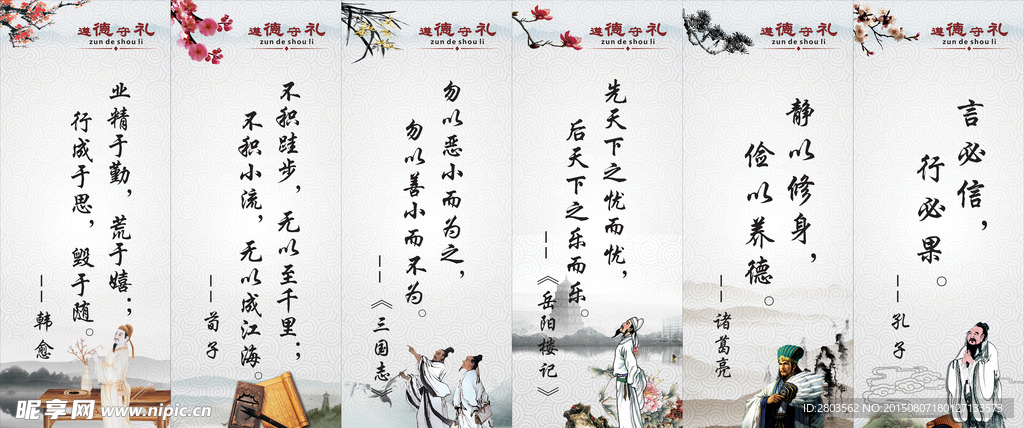 道德守礼
zun de shou li
业精于勤，荒于嬉；
行成于思，毁于随。
——韩愈
道德守礼
zun de shou li
不积跬步，无以至千里；
不积小流，无以成江海。
——荀子
道德守礼
zun de shou li
勿以恶小而为之，
勿以善小而不为。
——《三国志》
道德守礼
zun de shou li
先天下之忧而忧，
后天下之乐而乐。
——《岳阳楼记》
道德守礼
zun de shou li
静以修身，
俭以养德。
——诸葛亮
道德守礼
zun de shou li
言必信，
行必果。
——孔子
昵享网 www.nipic.cn
ID:2803562 NO:20150807180127133573